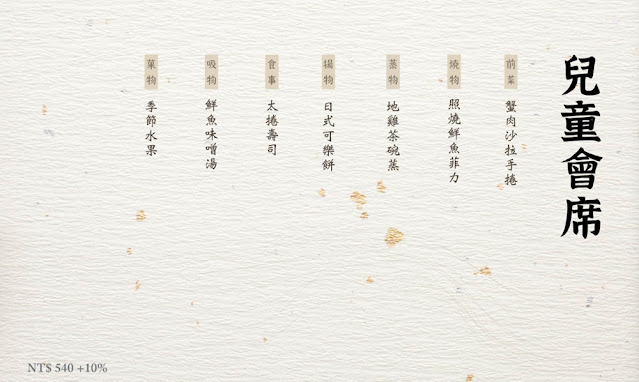 兒童會席
前菜
蟹肉沙拉手捲
燒物
照燒鮮魚菲力
蒸物
地雞茶碗蒸
揚物
日式可樂餅
食事
太捲壽司
吸物
鮮魚味噌湯
菓物
季節水果
NT$ 540 +10%